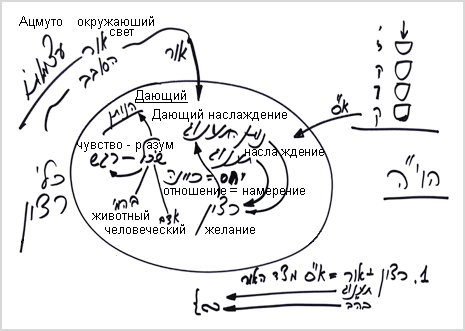 Ацмуто окружаюший
свет
עצמותו
אור
הסובב
אור
Дающий
הנותן
Дающий наслаждение
נותן תענוג
чувство - разум
שכל - רגש
наслаждение
תענוג
יחס = כוונה
отношение = намерение
רצון
животный
בהמי
человеческий
אדם
желание
כלי
רצון
א"ס
י
ה
ו
ה
הוי"ה
1. רצון לאור = א"ס מצד האור
תענוג